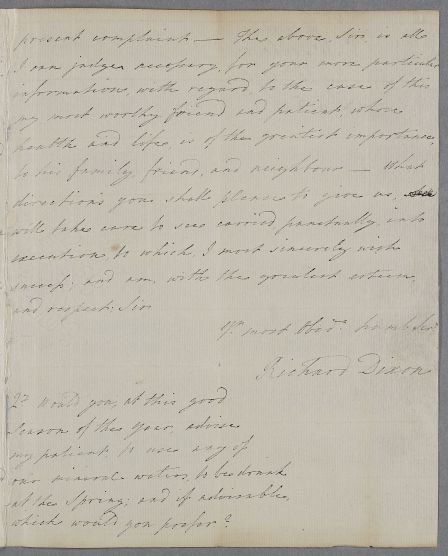 present complaint — The above, Sir, is all
I can judge necessary, for your more particular
information, with regard, to the case of this
my most worthy friend and patient, whose
health and life, is of the greatest importance,
to his family, friend, and neighbour — What
directions you shall please to give us,
will take care to see carried punctually into
execution, to which, I most sincerely wish
success; and am, with the greatest esteem,
and respect; Sir
Yr. most Obedt. humb Servt
Richard Dixon
Qy. Would you, at this good
Season of the year, advise
my patient to use any of
our mineral waters, to be drank
at the Spring; and if adviseable,
which would you prefer?